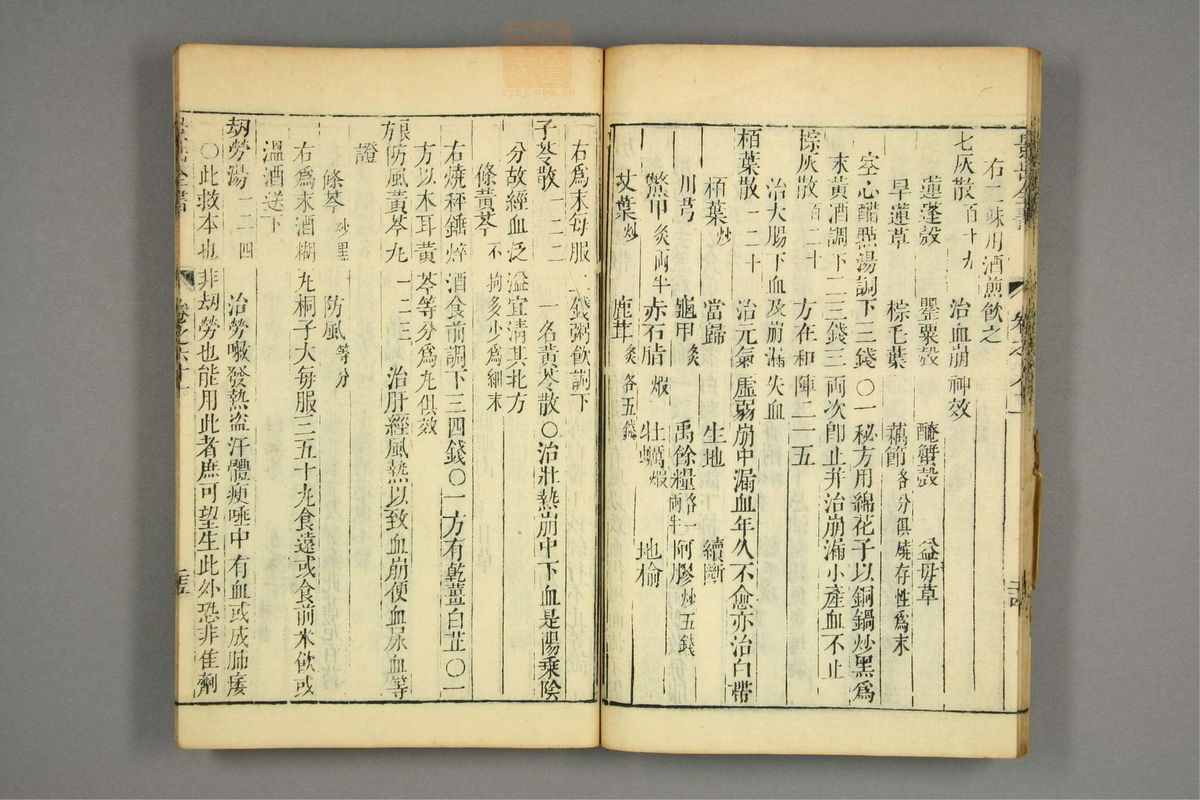 右二味用酒煎飲之
七灰散百十九 治血崩神效
蓮蓬殼 罌粟殼 醃蟹殼 益母草
旱蓮草 棕毛葉 藕節各分俱燒存性爲末
空心醋點湯調下三錢○一秘方用綿花子以銅鍋炒黑爲
末黃酒調下二三錢三兩次卽止并治崩漏小產血不止
棕灰散百二十 方在和陣二一五
治大腸下血及崩漏失血
栢葉散一二十 治元氣虛弱崩中漏血年久不愈亦治白帶
栢葉炒 當歸 生地 續斷
川芎 龜甲炙 禹餘糧各一兩半 阿膠炒五錢
鱉甲炙兩半 赤石脂煆 牡蠣煆 地榆
艾葉炒 鹿茸炙各五錢
右爲末每服二錢粥飲調下
子芩散一二二 一名黃芩散○治壯熱崩中下血是陽乘陰
分故經血泛溢宜清其北方
條黃芩不拘多少爲細末
右燒秤錘焠酒食前調下三四錢○一方有乾薑白芷○一
方以木耳黃芩等分爲丸俱效
良方防風黃芩丸一二三 治肝經風熱以致血崩便血尿血等
證
條芩炒黑 防風等分
右爲末酒糊丸桐子大每服三五十丸食遠或食前米飲或
溫酒送下
劫勞湯一二四 治勞嗽發熱盗汗體瘦唾中有血或成肺痿
○此救本也非劫勞也能用此者庶可望生此外恐非佳劑